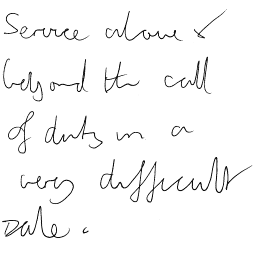 Service alone &
beyond the call
of duty in a
very difficult
Date.